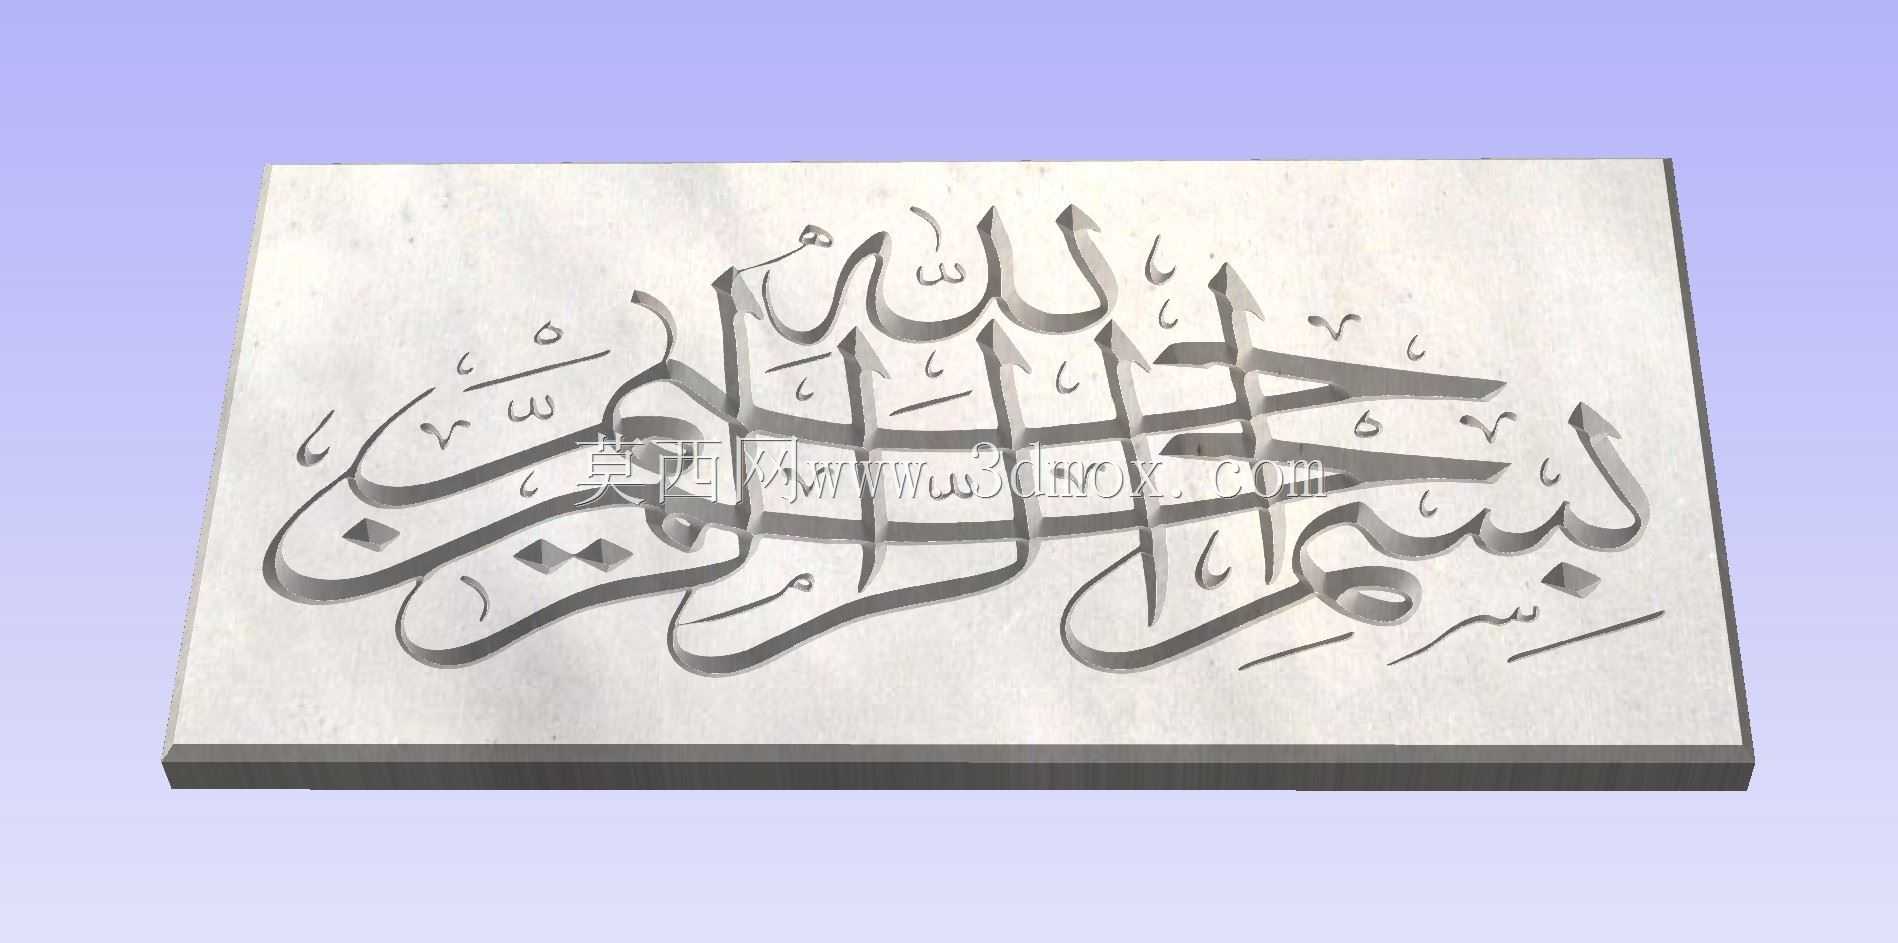 بسم الله الرحمن الرحيم
莫西网www.3dmox.com